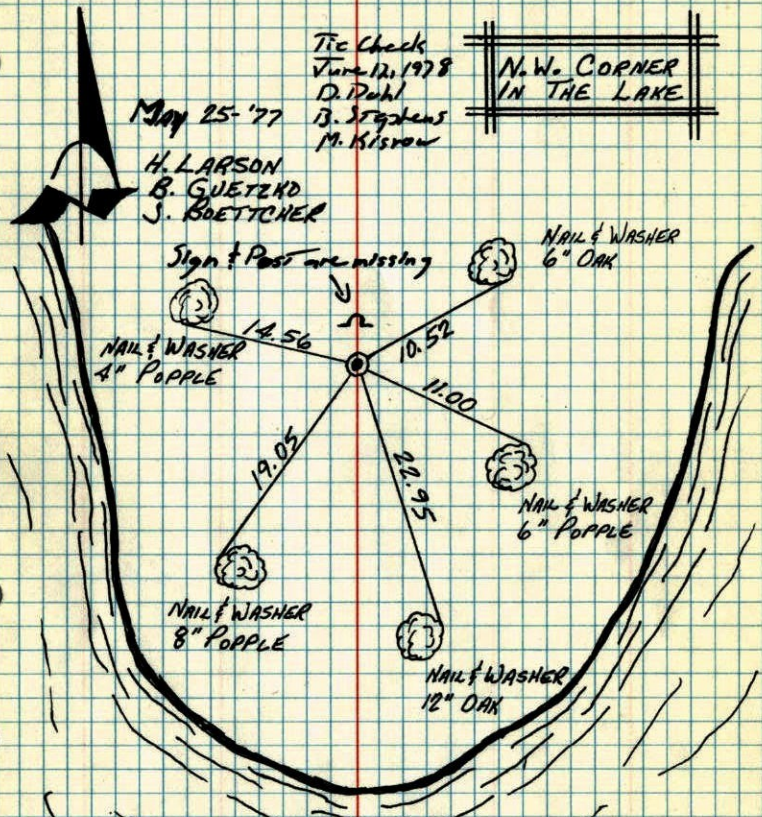 Tie Check
June 12, 1978
D. Dahl
B. Stephens
M. Kisrow
N.W. CORNER
IN THE LAKE
MAY 25-'77
H. LARSON
B. GUETZKO
J. BOETTCHER
Sign & Post are missing
NAIL & WASHER
6" OAK
14.56
10.52
NAIL & WASHER
4" POPPLE
11.00
19.05
22.95
NAIL & WASHER
6" POPPLE
NAIL & WASHER
8" POPPLE
NAIL & WASHER
12" OAK